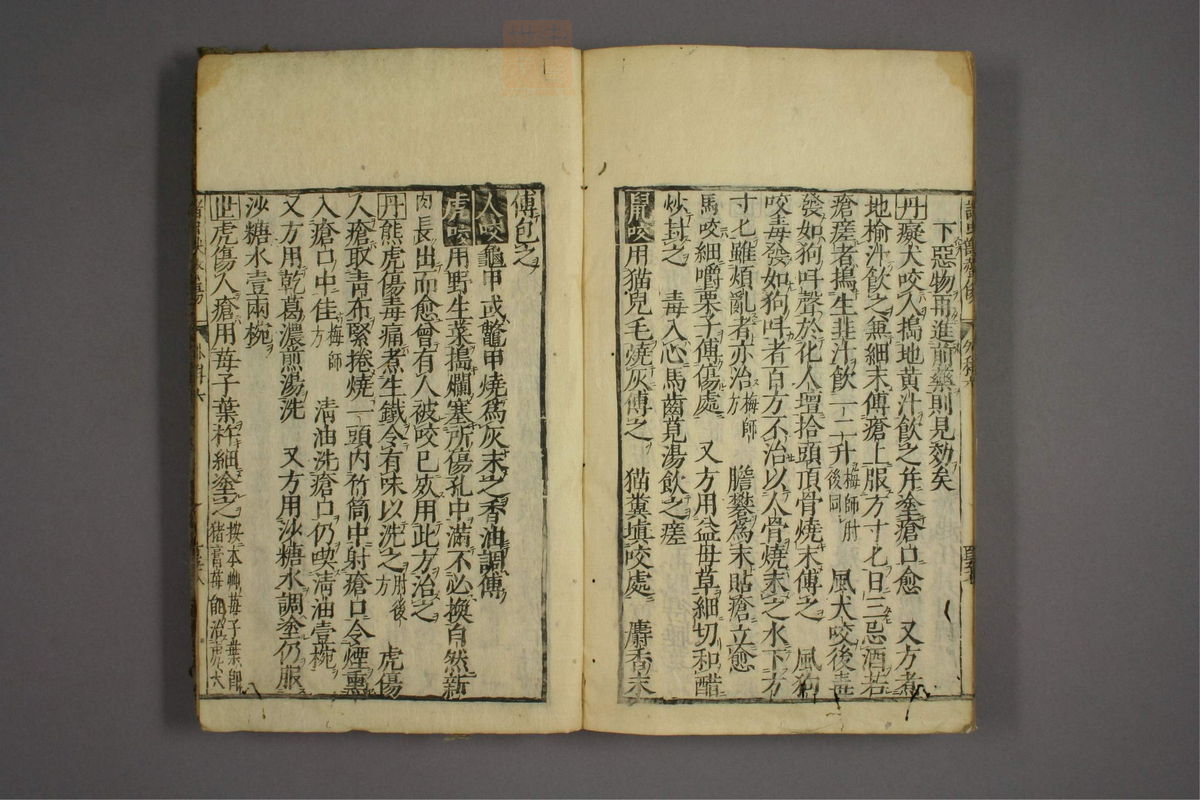 下惡物再進前藥則見効矣
丹癡犬咬人搗地黃汁飲之并塗瘡口愈 又方煮
地榆汁飲之兼細末傅瘡上服方寸匕日三忌酒若
瘡瘥者搗生韭汁飲一二升梅師肘後同 風犬咬後毒
發如狗吽聲於化人壇拾頭頂骨燒末傅之 風狗
咬毒發如狗吽者百方不治以人骨燒末之水下方
寸匕雖煩亂者亦治梅師方 膽礬爲末貼瘡立愈
馬咬細嚼栗子傅傷處 又方用益母草細切和醋
炒封之 毒入心馬齒莧湯飲之瘥
鼠咬用猫兒毛燒灰傅之 猫糞塡咬處 麝香末
傅包之
人咬龜甲或鼈甲燒爲灰末之香油調傅
虎咬用野生菜搗爛塞所傷孔中滿不必換自然新
肉長出而愈曾有人被咬已㱱用此方治之
丹熊虎傷毒痛煮生鐵令有味以洗之肘後方 虎傷
人瘡取靑布緊捲燒一頭內竹筒中射瘡口令煙熏
入瘡口中佳梅師方 淸油洗瘡口仍喫淸油壹椀
又方用乾葛濃煎湯洗 又方用沙糖水調塗仍服
沙糖水壹兩椀
世虎傷人瘡用莓子葉杵細塗之按本艸莓子葉卽